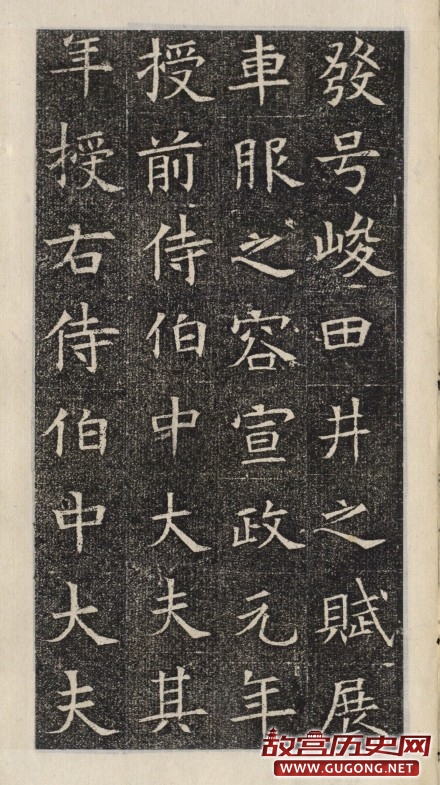 發号峻田井之賦展
車服之容宣政元年
授前侍伯中大夫其
年授右侍伯中大夫
故宫历史网
WWW.GUGONG.NET